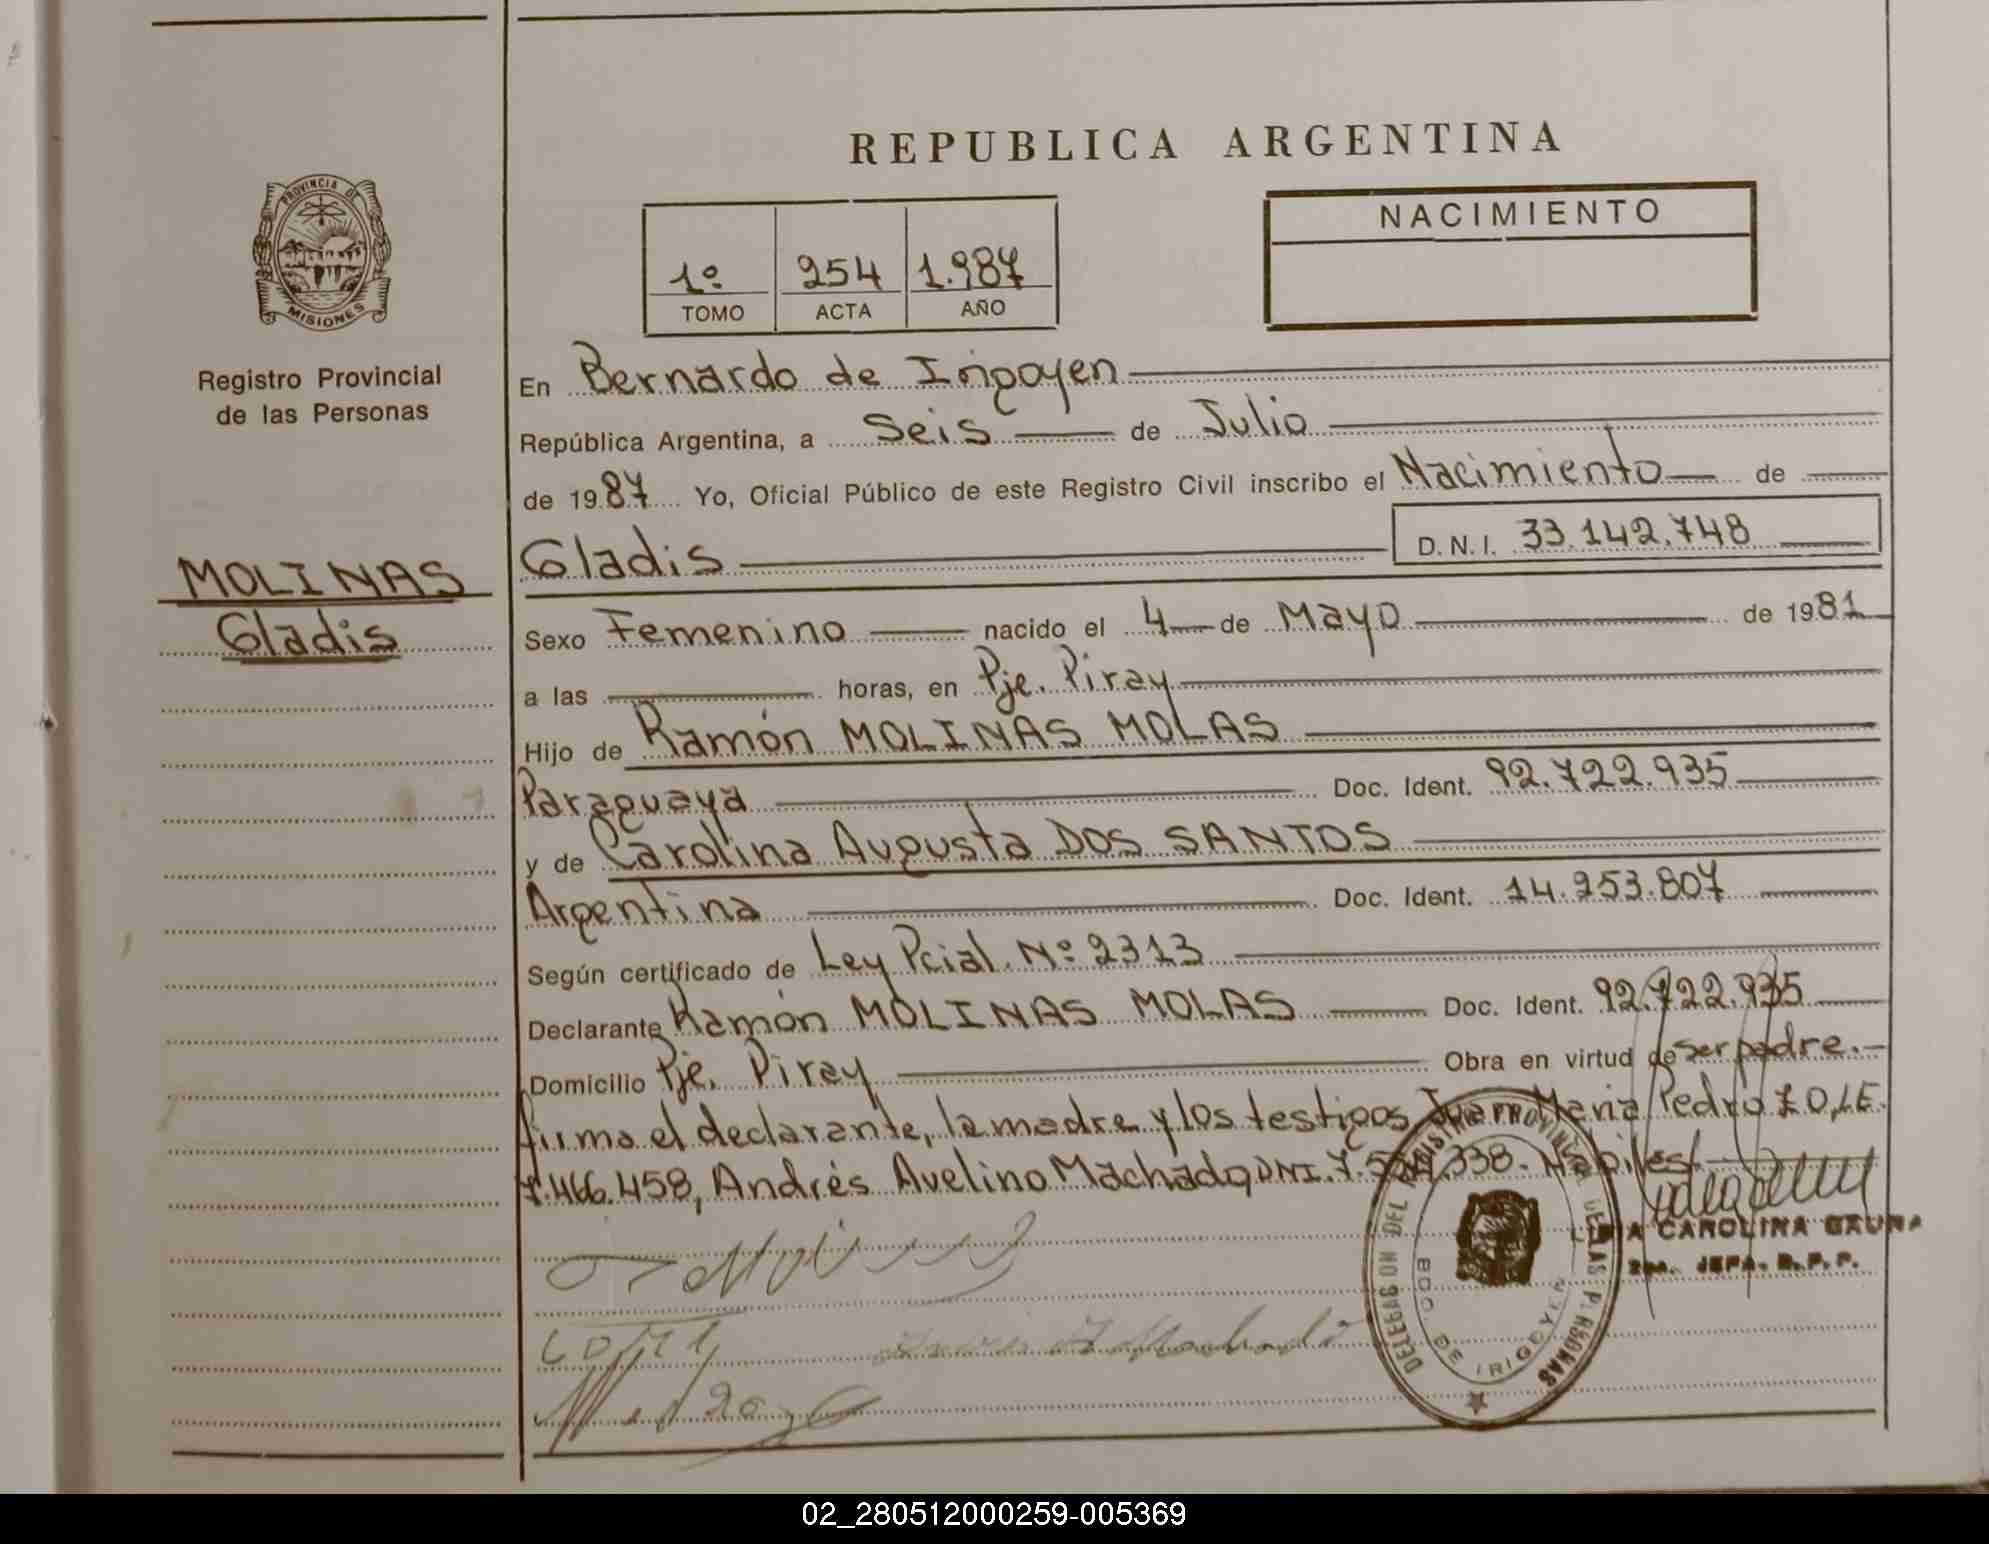 REPUBLICA ARGENTINA
PROVINCIA DE
MISIONES
Registro Provincial
de las Personas
NACIMIENTO
1º 254 1.987
TOMO ACTA AÑO
En Bernardo de Irigoyen
República Argentina, a Seis de Julio
de 1987 Yo, Oficial Público de este Registro Civil inscribo el Nacimiento de
Gladis D.N.I. 33.142.748
MOLINAS
Gladis
Sexo Femenino nacido el 4 de Mayo de 1981
a las horas, en Pje. Piray
Hijo de Ramón MOLINAS MOLAS
Paraguaya Doc. Ident. 92.722.935
y de Carolina Augusta DOS SANTOS
Argentina Doc. Ident. 14.253.807
Según certificado de Ley Pcial. Nº 2313
Declarante Ramón MOLINAS MOLAS Doc. Ident. 92.722.935
Domicilio Pje. Piray Obra en virtud de ser padre.-
firma el declarante, la madre y los testigos Juan Maria Pedro
7.466.458, Andrés Avelino Machado, DNI. 338.
CAROLINA GAUNA
JEFA. R.P.P.
DELEGASION DEL REGISTRO PROVINCIAL DE LAS PERSONAS
BDO. DE IRIGOYEN
02_280512000259-005369